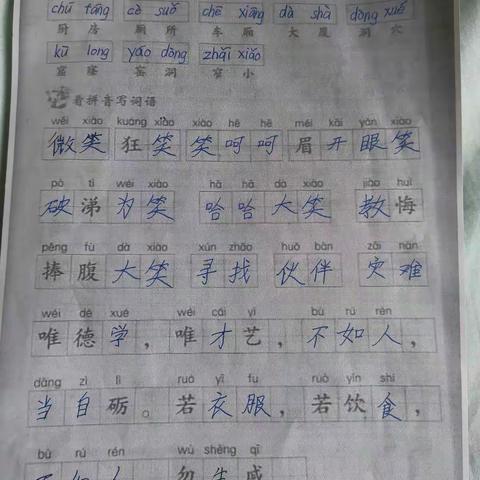 chú fáng cè suǒ chē xiāng dà shà dòng xué
厨房 厕所 车厢 大厦 洞穴
kū long yáo dòng zhǎi xiǎo
窟窿 窑洞 窄小
看拼音写词语
wēi xiào kuáng xiào xiào hē hē méi kāi yǎn xiào
微笑 狂笑 笑呵呵 眉开眼笑
pò tì wéi xiào hā hā dà xiào jiào huǐ
破涕为笑 哈哈大笑 教悔
pěng fù dà xiào xún zhǎo huǒ bàn zāi nàn
捧腹大笑 寻找 伙伴 灾难
wéi dé xué wéi cái yì bù rú rén
唯德学，唯才艺，不如人，
dāng zì lì ruò yī fu ruò yǐn shí
当自砺。若衣服，若饮食，
bù rú rén wù shēng qī
不如人 勿生戚